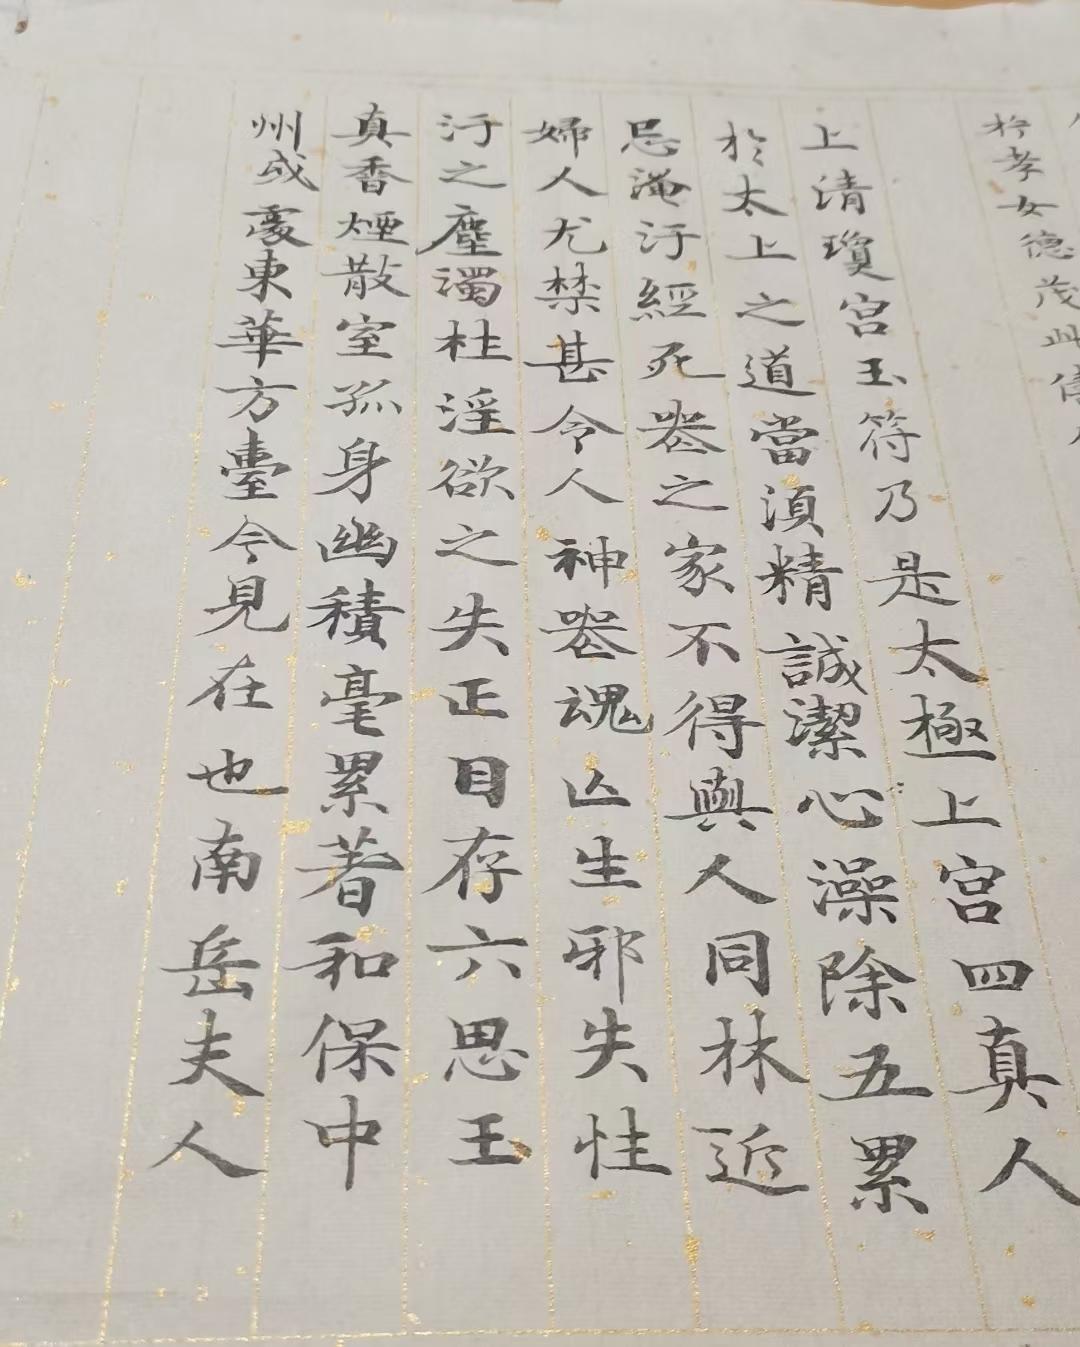 扵孝女德茂此傳
上清瓊宫玉符乃是太極上宫四真人
扵太上之道當須精誠潔心澡除五累
忌淹汙經死喪之家不得與人同林近
婦人尤禁甚令人神喪魂亡生邪失性
汙之塵濁杜淫欲之失正目存六思玉
真香煙散室孤身幽積毫累著和保中
州成東華方臺今見在也南岳夫人